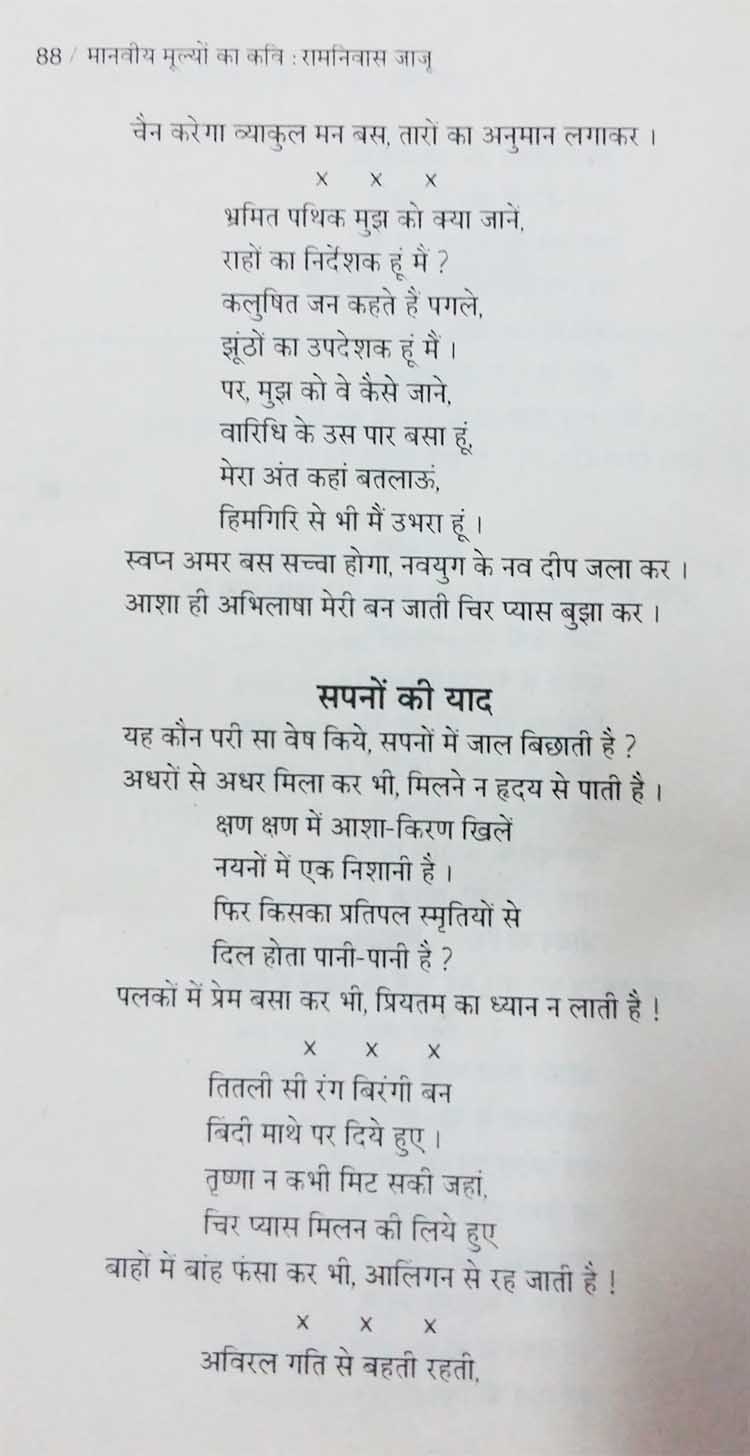 88 / मानवीय मूल्यों का कवि : रामनिवास जाजू
चैन करेगा व्याकुल मन बस, तारों का अनुमान लगाकर ।
x x x
भ्रमित पथिक मुझ को क्या जानें,
राहों का निर्देशक हूं मैं ?
कलुषित जन कहते हैं पगले,
झूंठों का उपदेशक हूं मैं ।
पर, मुझ को वे कैसे जाने,
वारिधि के उस पार बसा हूं,
मेरा अंत कहां बतलाऊं,
हिमगिरि से भी मैं उभरा हूं ।
स्वप्न अमर बस सच्चा होगा, नवयुग के नव दीप जला कर ।
आशा ही अभिलाषा मेरी बन जाती चिर प्यास बुझा कर ।
सपनों की याद
यह कौन परी सा वेष किये, सपनों में जाल बिछाती है ?
अधरों से अधर मिला कर भी, मिलने न हृदय से पाती है ।
क्षण क्षण में आशा-किरण खिलें
नयनों में एक निशानी है ।
फिर किसका प्रतिपल स्मृतियों से
दिल होता पानी-पानी है ?
पलकों में प्रेम बसा कर भी, प्रियतम का ध्यान न लाती है !
x x x
तितली सी रंग बिरंगी बन
बिंदी माथे पर दिये हुए ।
तृष्णा न कभी मिट सकी जहां,
चिर प्यास मिलन की लिये हुए
बाहों में बांह फंसा कर भी, आलिंगन से रह जाती है !
x x x
अविरल गति से बहती रहती,